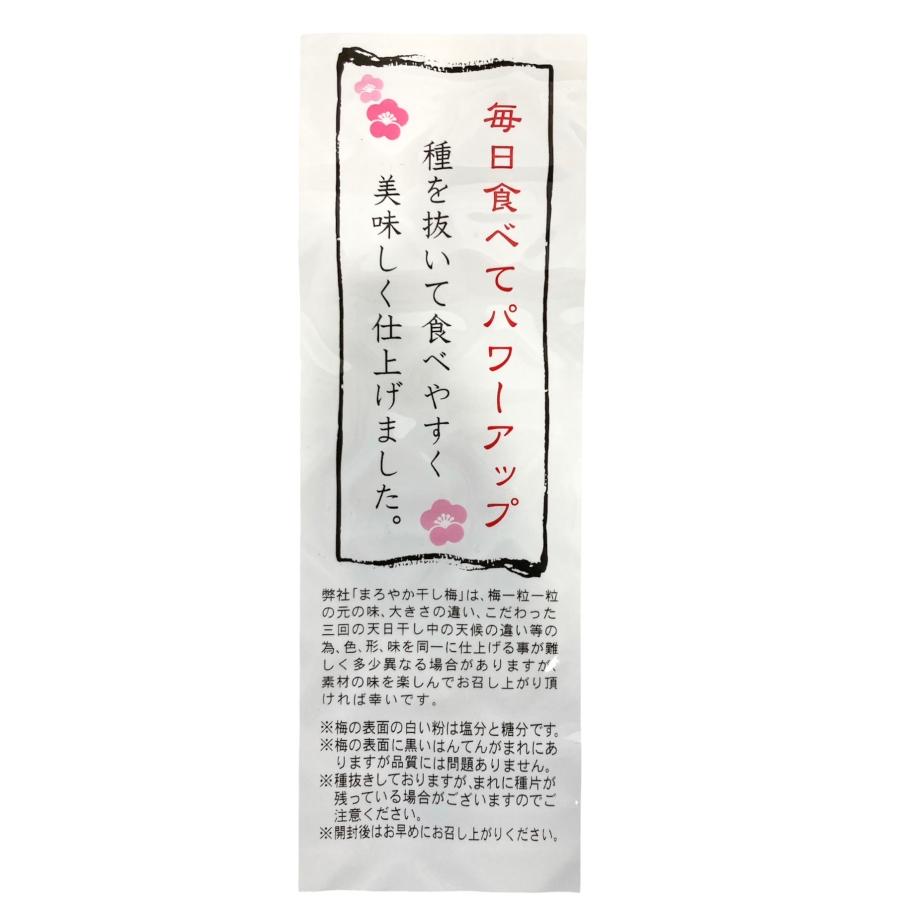 毎日食べてパワーアップ
種を抜いて食べやすく
美味しく仕上げました。
弊社「まろやか干し梅」は、梅一粒一粒
の元の味、大きさの違い、こだわった
三回の天日干し中の天候の違い等の
為、色、形、味を同一に仕上げる事が難
しく多少異なる場合がありますが、
素材の味を楽しんでお召し上がり頂
ければ幸いです。
※梅の表面の白い粉は塩分と糖分です。
※梅の表面に黒いはんてんがまれにあ
りますが品質には問題ありません。
※種抜きしておりますが、まれに種片が
残っている場合がございますのでご
注意ください。
※開封後はお早めにお召し上がりください。